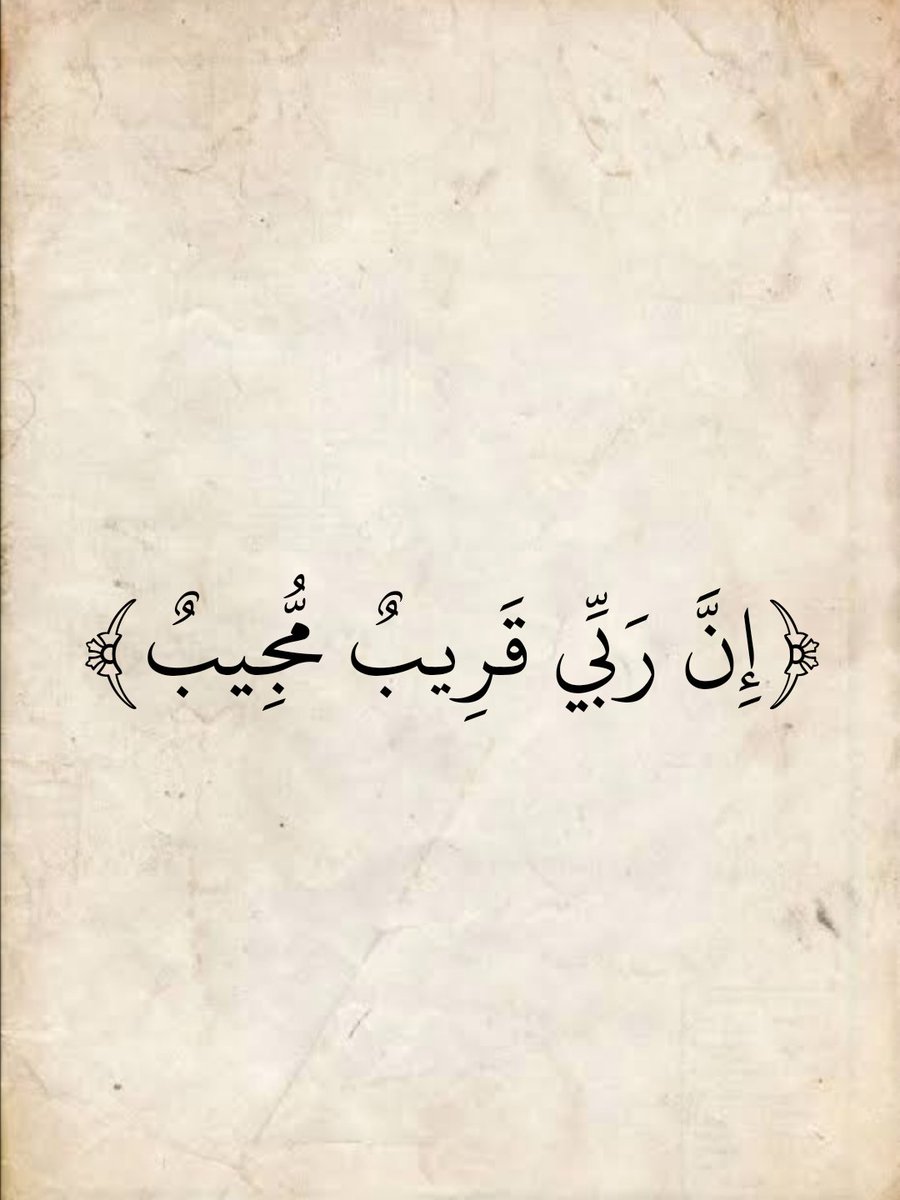 ﴿ إِنَّ رَبِّي قَرِيبٌ مُّجِيبٌ ﴾